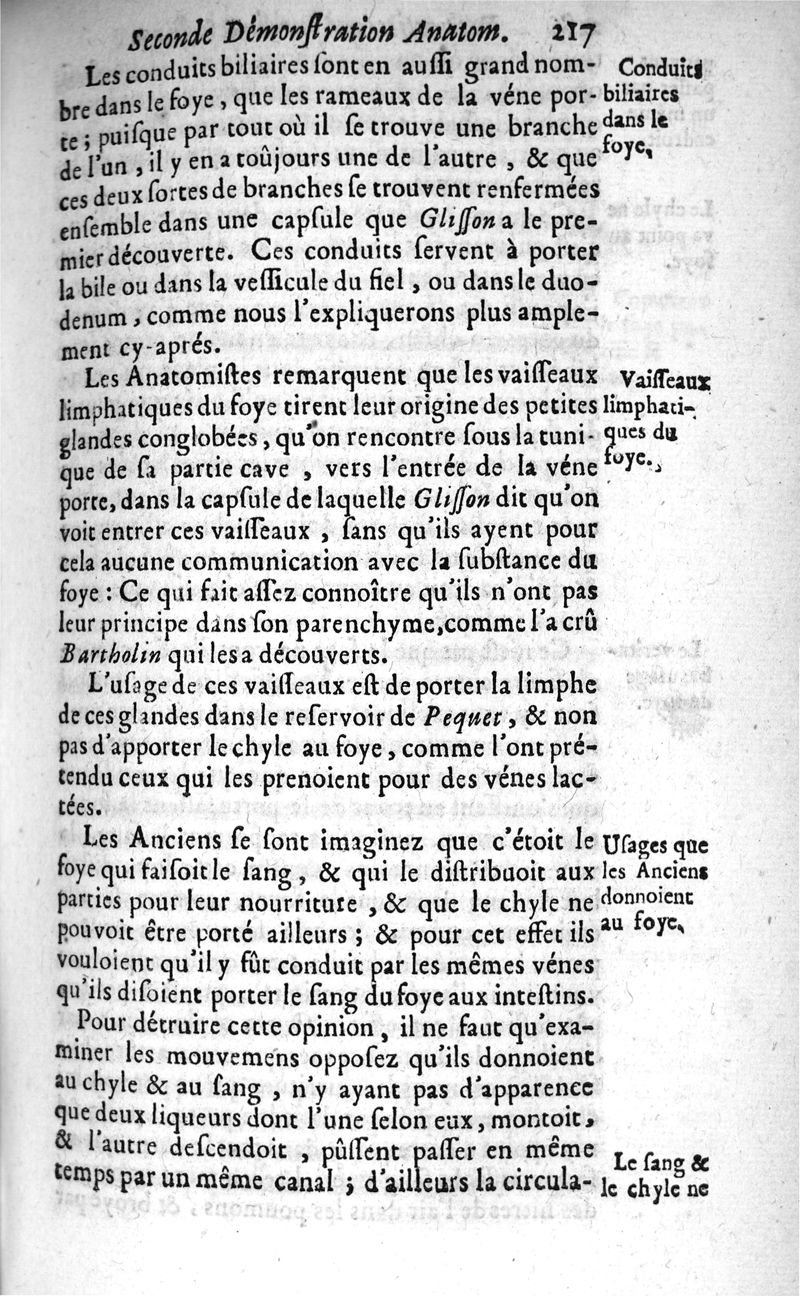 Seconde Démonſtration Anatom. 217
Les conduits biliaires ſont en auſſi grand nom-
bre dans le foye, que les rameaux de la véne por-
te; puiſque par tout où il ſe trouve une branche
de l'un, il y en a toûjours une de l'autre, & que
ces deux ſortes de branches ſe trouvent renfermées
enſemble dans une capſule que Gliſſon a le pre-
mier découverte. Ces conduits ſervent à porter
la bile ou dans la veſſicule du fiel, ou dans le duo-
denum, comme nous l'expliquerons plus ample-
ment cy-aprés.
Conduits
biliaires
dans le
foye.
Les Anatomiſtes remarquent que les vaiſſeaux
limphatiques du foye tirent leur origine des petites
glandes conglobées, qu'on rencontre ſous la tuni-
que de ſa partie cave, vers l'entrée de la véne
porte, dans la capſule de laquelle Gliſſon dit qu'on
voit entrer ces vaiſſeaux, ſans qu'ils ayent pour
cela aucune communication avec la ſubſtance du
foye : Ce qui fait aſſez connoître qu'ils n'ont pas
leur principe dans ſon parenchyme, comme l'a crû
Bartholin qui les a découverts.
Vaiſſeaux
limphati-
ques du
foye.
L'uſage de ces vaiſſeaux eſt de porter la limphe
de ces glandes dans le reſervoir de Pequet, & non
pas d'apporter le chyle au foye, comme l'ont pré-
tendu ceux qui les prenoient pour des vénes lac-
tées.
Les Anciens ſe ſont imaginez que c'étoit le
foye qui faiſoit le ſang, & qui le diſtribuoit aux
parties pour leur nourriture, & que le chyle ne
pouvoit être porté ailleurs ; & pour cet effet ils
vouloient qu'il y fût conduit par les mêmes vénes
qu'ils diſoient porter le ſang du foye aux inteſtins.
Uſages que
les Anciens
donnoient
au foye.
Pour détruire cette opinion, il ne faut qu'exa-
miner les mouvemens oppoſez qu'ils donnoient
au chyle & au ſang, n'y ayant pas d'apparence
que deux liqueurs dont l'une ſelon eux, montoit,
& l'autre deſcendoit, pûſſent paſſer en même
temps par un même canal ; d'ailleurs la circula-
Le ſang &
le chyle ne